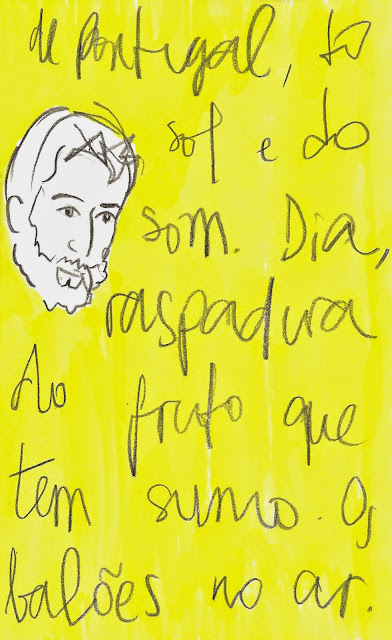 de Portugal, do
sol e do
som. Dia,
raspadura
Ao fruto que
tem sumo. Os
balões no ar.